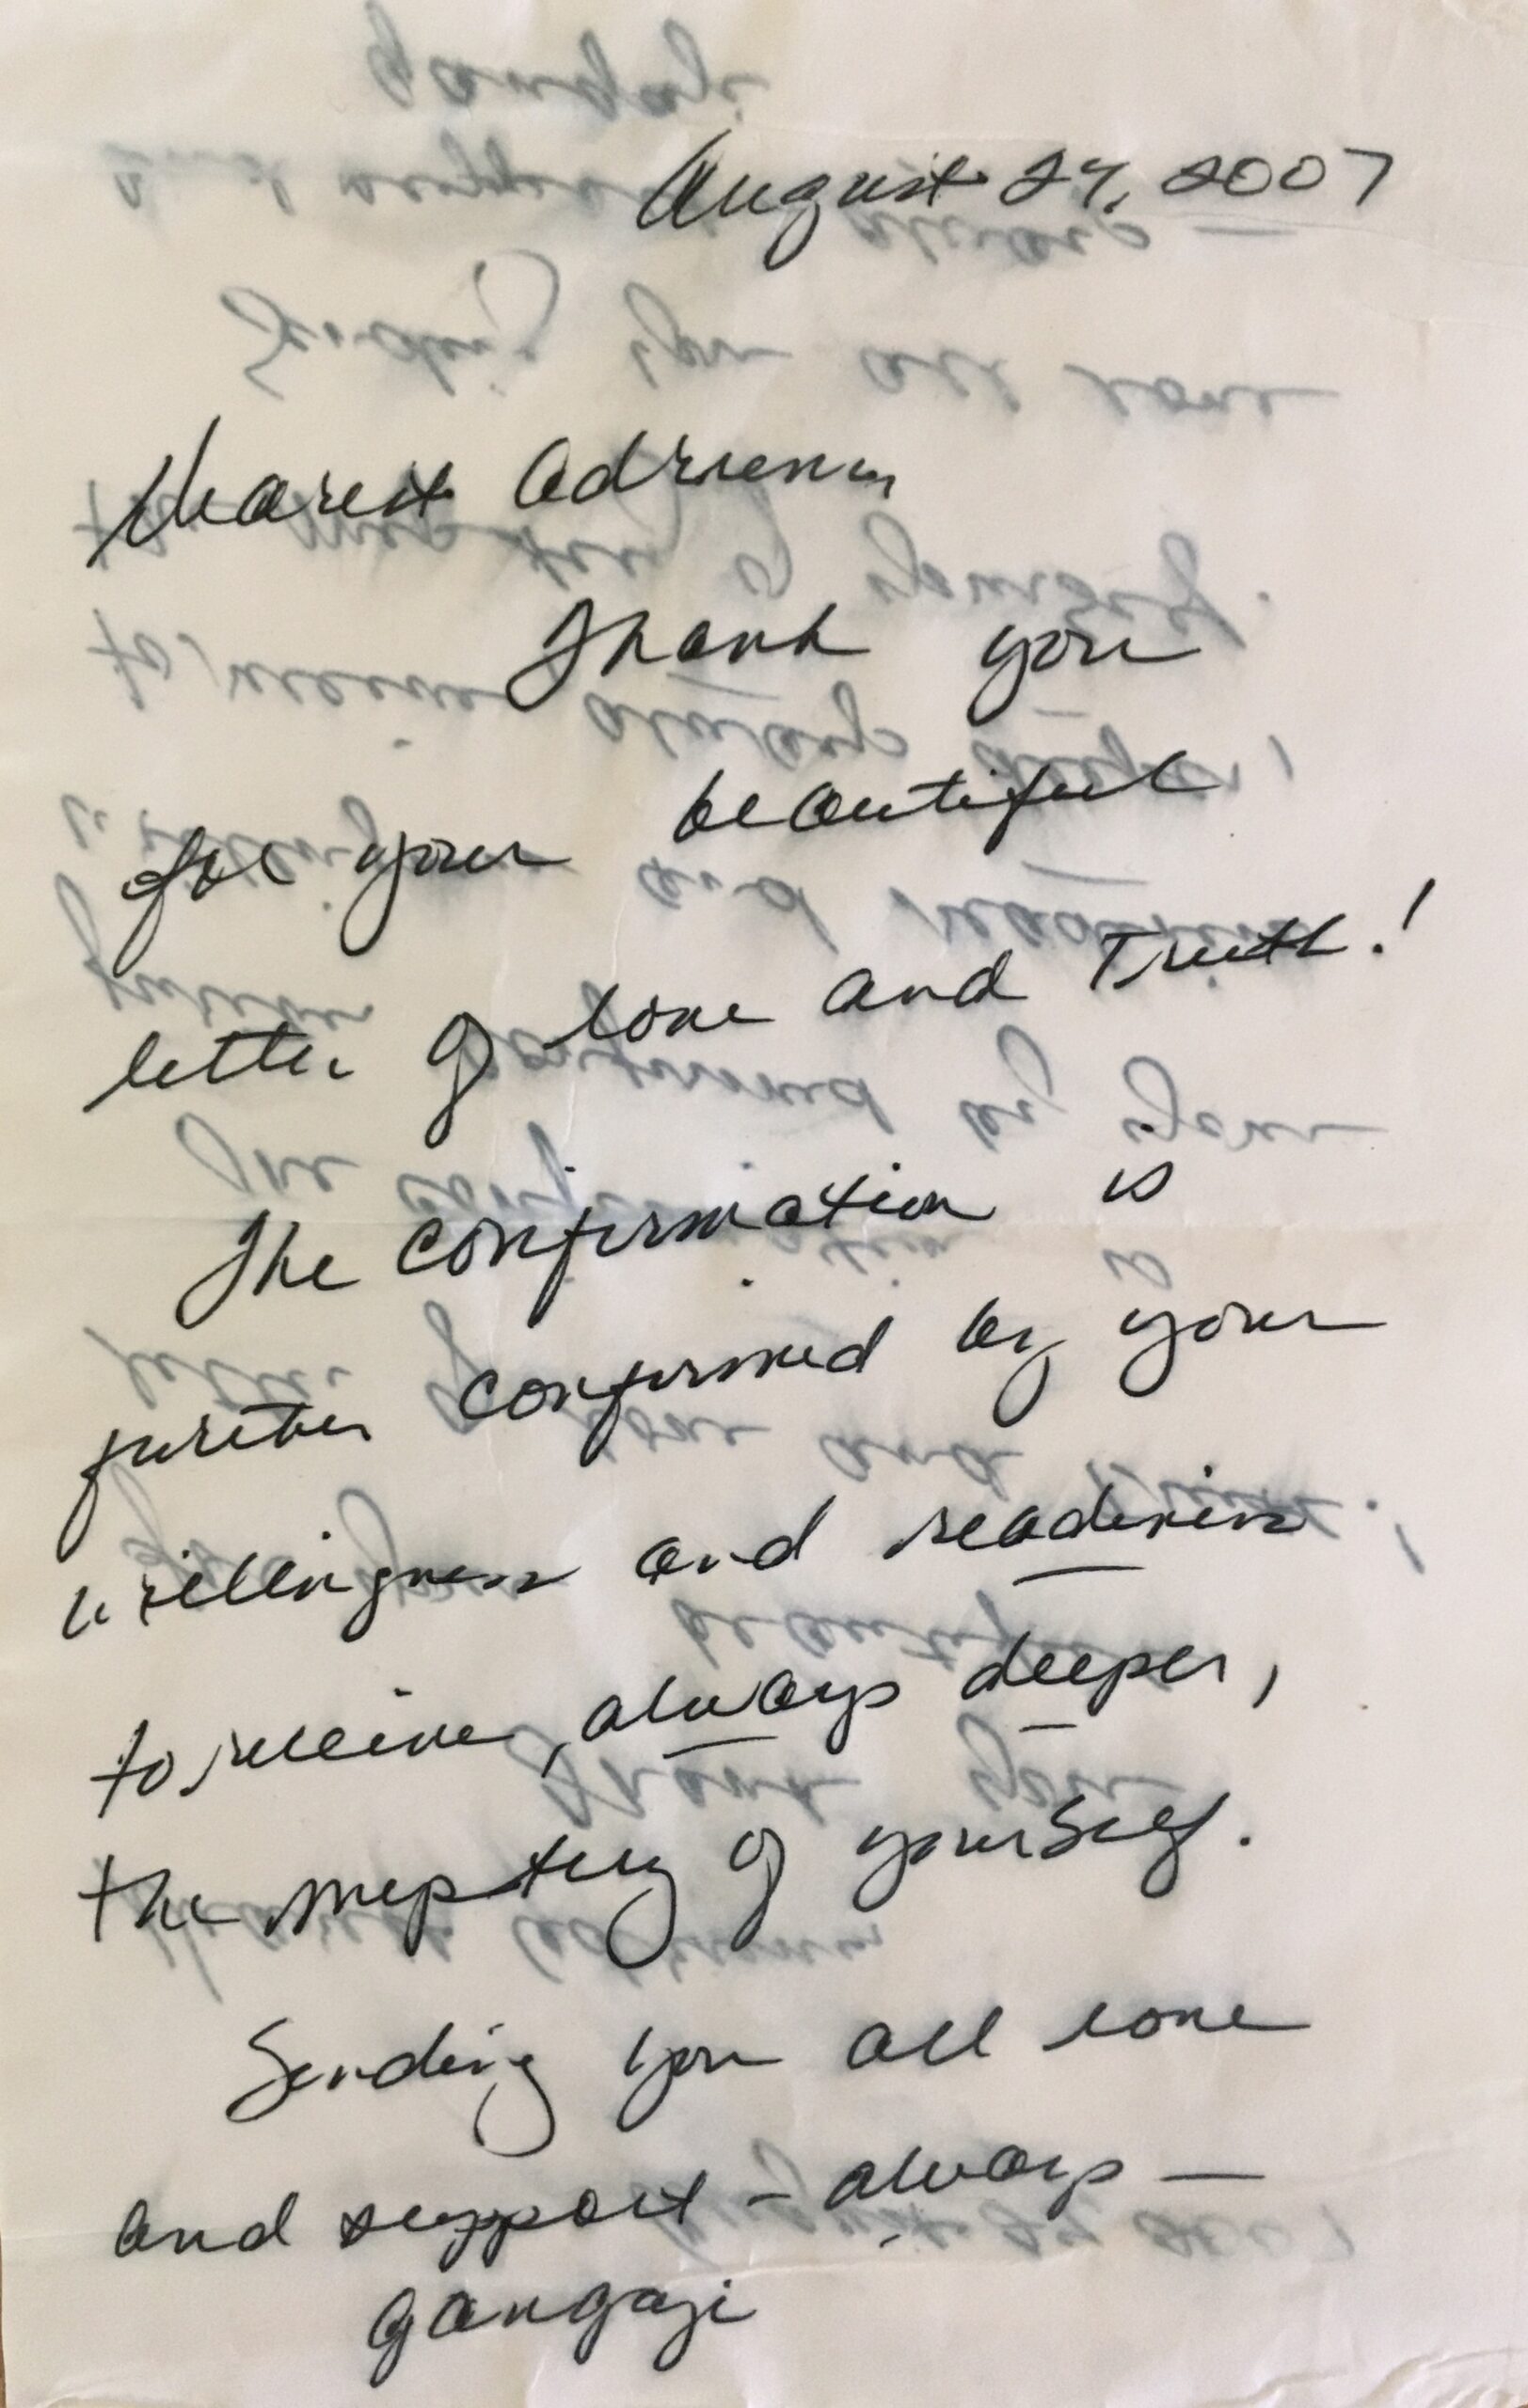 August 24, 2007
Dearest Adrienne
Thank you
for your beautiful
letter of love and Truth!
The confirmation is
further confirmed by your
willingness and readiness
to receive, always deeper,
the mystery of yourSelf.
Sending you all love
and support – always –
gangaji